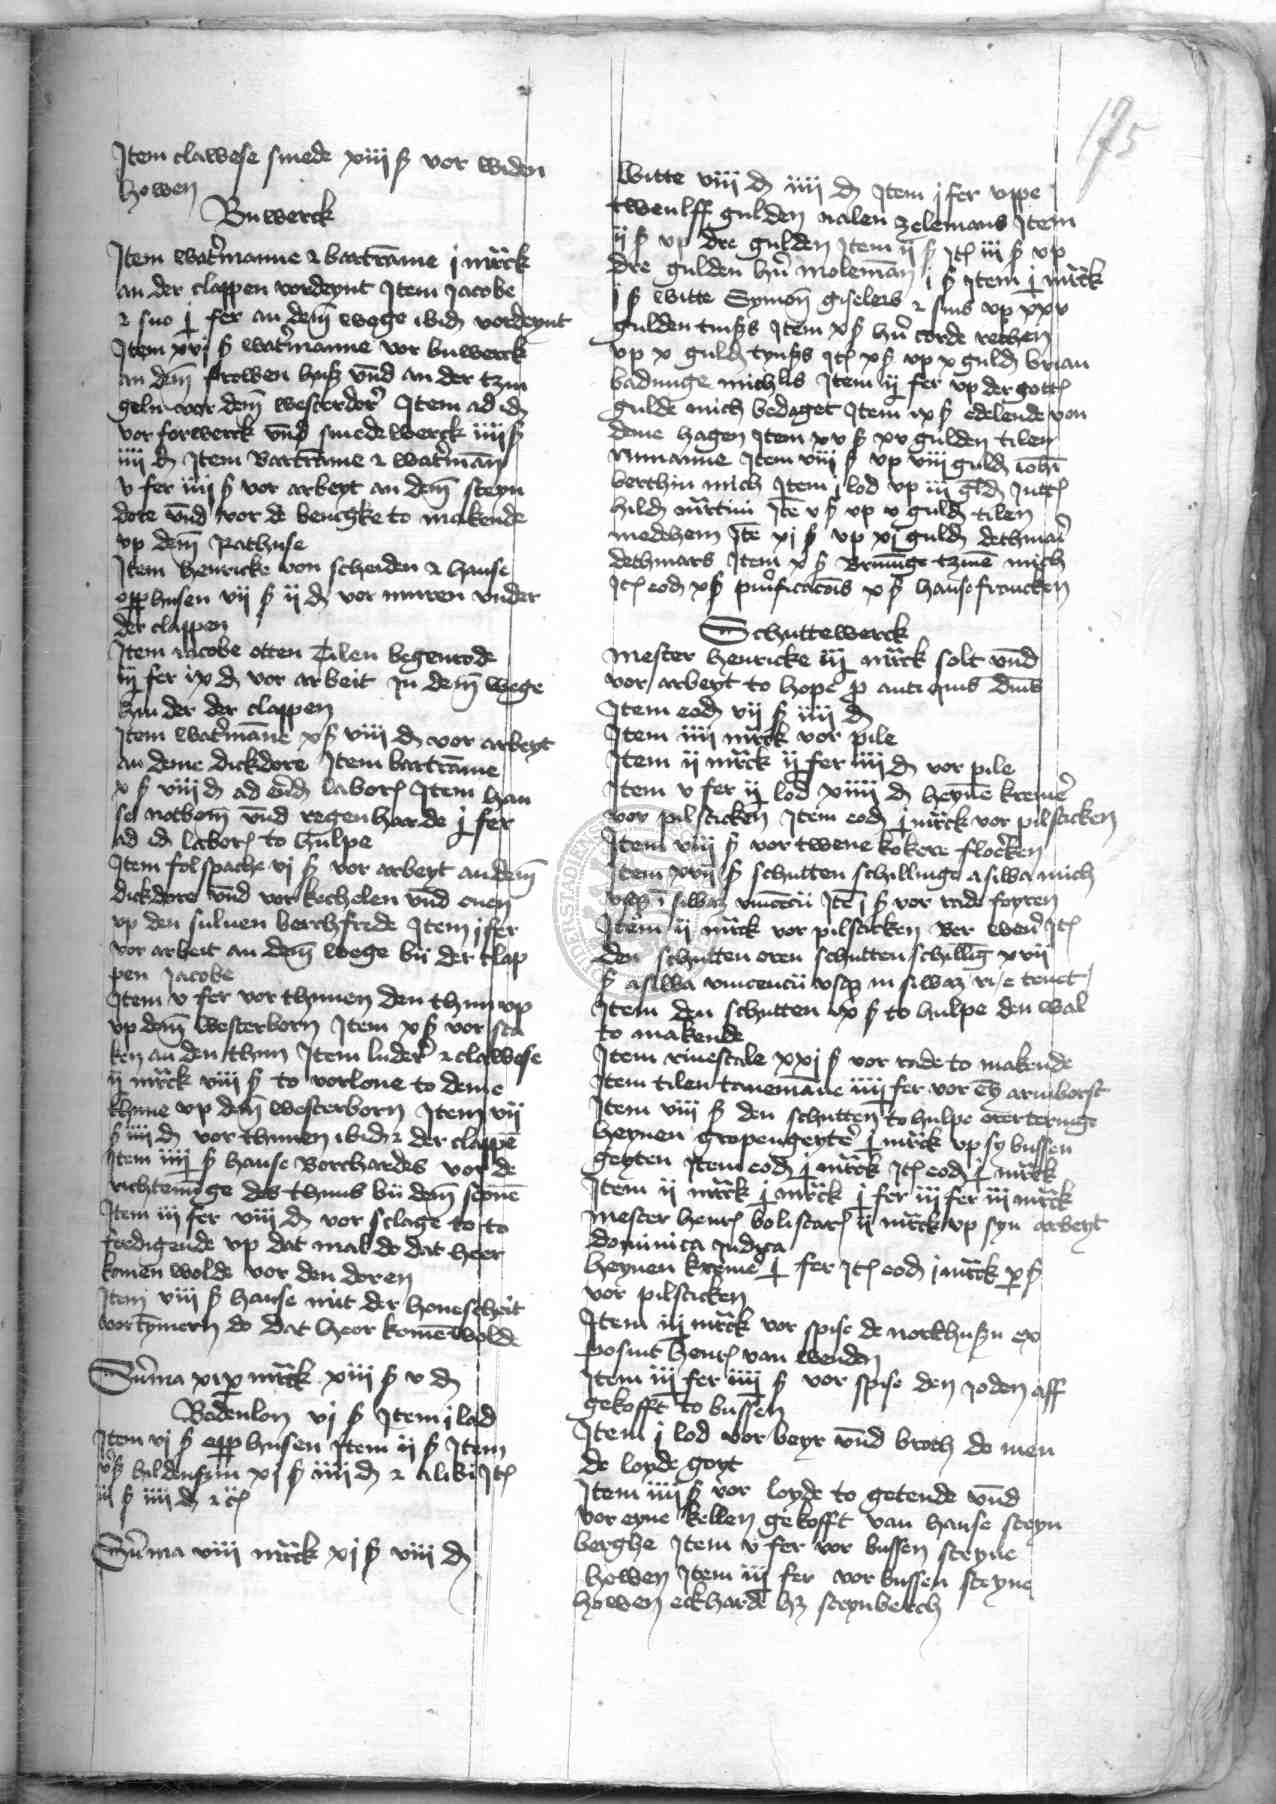 175
Item clawese smede xiiii ß vor widen
howen
Buwerck
Item wat'manne & bartrame j mrck
an der clappen vordeynt Item Jacobe
& suo j fer an dem wege ibid vordeynt
Item xvj ß wat'manne vor buwerck
an dem frowen huß vnd an der tzin
geln vor dem westerdor' Item ad id
vor forwerck vnd smedewerck iiii ß
iiii d Item Bartrame & wat'man
v fer iiii ß vor arbeyt an dem steyn
dore vnd vor de bencgke to makende
vp dem Rathuse
Item Henricke von scheiden & hanse
epphusen vii ß ii d vor muren vnder
der clappen
Item iacobe otten Tilen begenrode
iij fer ix d vor arbeit in dem wege
hin der der clappen
Item wat'mane x ß viii d vor arbeyt
an deme dickdore Item bartrame
x ß viii d ad eund labor Item han
se notbom vnd regenharde j fer
ad id labor to hulpe
Item folspache vj ß vor arbeyt an dem
dickdore vnd vor kechelen vnd ouen
vp den suluen berchfrede Item j fer
vor arbeit an dem wege bii der clap
pen Jacobe
Item v fer vor thunen den thun vp
vp dem westerborn Item x ß vor sta
ken an den thun Item luder' & clawese
ij mrck viii ß to vorlone to deme
thune vp dem westerborn Item vii
ß iiii d vor thunen ibid & der clappe
Item iiij ß hanse Borchardes vor de
richtemge des thuns bii dem
Item iii fer viii d vor sclage to to
ferdigende vp dat mal do dat heer
komen wolde vor den doren
Item viii ß hanse mit der honescheit
vortymern do dat heer komen wolde
Suma xix mrck xiii ß v d
Badenlon vj ß Item j lod
Item vj ß epphusen Item ij ß Item
hildensem xj ß iiii d & aliki It
iii ß iiii d &
Suma viii mrck xj ß viii d
witte viii d iiii d Item j fer vppe
twenlff gulden nalen zelemans Item
ij ß vp dre gulden Item ij ß It iii ß vp
dre gulden hn' moleman j ß Item j mrck
j ß witte Symon giselers & suis vp xxv
gulden tinßs Item x ß hn' Corde rethen
vp x guld tynßs It x ß vp x guld brian
badunge michlis Item ij fer vp der gott
gulde mich bedaget Item ix ß edelende von
deme hagen Item xv ß xv gulden tilen
rumanne Item viii ß vp viii guld ioh
berthin mich Item j lod vp iii gld Jutt
hild mrtini Ite v ß vp v guld tilen
medehem Ite xj ß vp xj guld dethmar
dethmars Item x ß Brunge tzime mich
It eod x ß purificacois x ß hanse francken
Schuttewerck
mester henricke iij mrck solt vnd
vor arbeyt to hope p antiquis
Item eod vij ß iiii d
Item iiii mrck vor pile
Item ij mrck ij fer iiii d vor pile
Item v fer ij lod xiiii d heyne kremer
vor pilsticken Item eod j mrck vor pilsticken
Item viii ß vor twene kokere flocken
Item xvii ß schutten schillinge a siwa mich
vincecii Ite j ß vor rade foyren
Item ij mrck vor pilsticken Ber wen' It
den schutten eren schutten schillig xvii
ß a siwa vincencii vsq in siwaz
Item den schutten ix ß to hulpe den wal
to makende
Item rinestale xxj ß vor rade to makende
Item tilen tauemane iiij fer vor armborst
Item viii ß den schutten to hulpe
heynen gropengeyter j mrck vp sy bussen
geyten Item eod j mrck It eod j mrck
Item ij mrck j mrck j fer iii fer iii mrck
mester henr bolistar ij mrck vp syn arbeyt
dominica Judica
heynen kreme' j fer It eod j mrck x ß
vor pilsticken
Item iij mrck vor spise de northusen ex
posuit henr van wenden
Item iii fer iiij ß vor spise den joden aff
gekofft to bussen
Item j lod vor beyr vnd broth do men
de loyde goyt
Item iiii ß vor loyde to getende vnd
vor eyne kellen gekofft van hanse steyn
berghe Item v fer vor bussen steyne
howen Item iij fer vor bussen steyne
howen eckharde steynberch